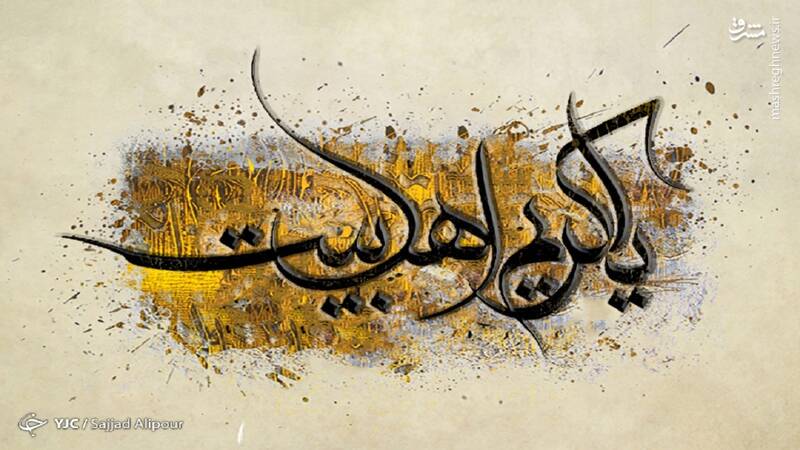 مشرق
mashreghnews.ir
یا کریم اهل بیت
YJC / Sajjad Alipour